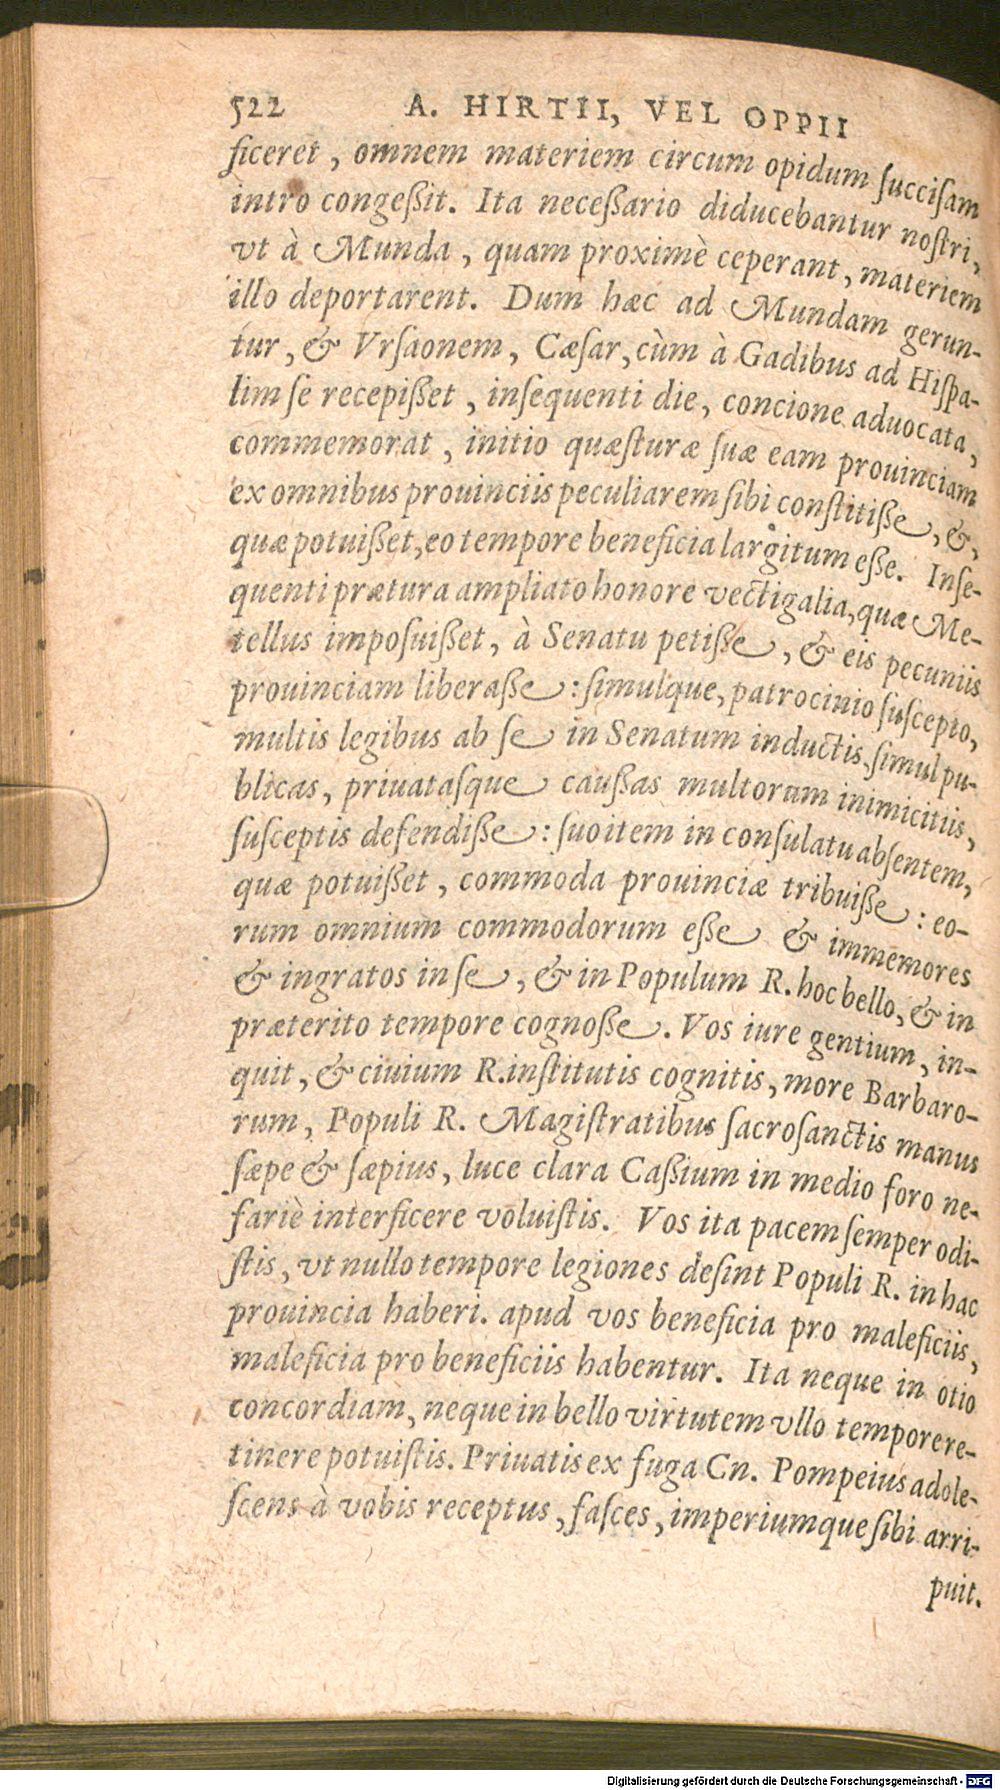 522 A. HIRTII, VEL OPPII
ficeret, omnem materiem circum opidum ſucciſam
intro congeßit. Ita neceßario diducebantur noſtri,
vt à Munda, quam proximè ceperant, materiem
illo deportarent. Dum hæc ad Mundam gerun-
tur, & Vrſaonem, Cæſar, cùm à Gadibus ad Hiſpa-
lim ſe recepißet, inſequenti die, concione aduocata,
commemorat, initio quæſturæ ſuæ eam prouinciam
ex omnibus prouinciis peculiarem ſibi conſtitiße, &,
quæ potuißet, eo tempore beneficia largitum eße. Inſe-
quenti prætura ampliato honore vectigalia, quæ Me-
tellus impoſuißet, à Senatu petiße, & eis pecuniis
prouinciam liberaße: ſimulque, patrocinio ſuſcepto,
multis legibus ab ſe in Senatum inductis, ſimul pu-
blicas, priuataſque caußas multorum inimicitiis,
ſuſceptis defendiße: ſuo item in conſulatu abſentem,
quæ potuißet, commoda prouinciæ tribuiße: eo-
rum omnium commodorum eße & immemores
& ingratos in ſe, & in Populum R. hoc bello, & in
præterito tempore cognoße. Vos iure gentium, in-
quit, & ciuium R. inſtitutis cognitis, more Barbaro-
rum, Populi R. Magiſtratibus ſacroſanctis manus
ſæpe & ſæpius, luce clara Caßium in medio foro ne-
fariè interficere voluiſtis. Vos ita pacem ſemper odi-
ſtis, vt nullo tempore legiones deſint Populi R. in hac
prouincia haberi. apud vos beneficia pro maleficiis,
maleficia pro beneficiis habentur. Ita neque in otio
concordiam, neque in bello virtutem vllo tempore re-
tinere potuiſtis. Priuatis ex fuga Cn. Pompeius adole-
ſcens à vobis receptus, faſces, imperiumque ſibi arri-
puit.
Digitalisierung gefördert durch die Deutsche Forschungsgemeinschaft - DFG